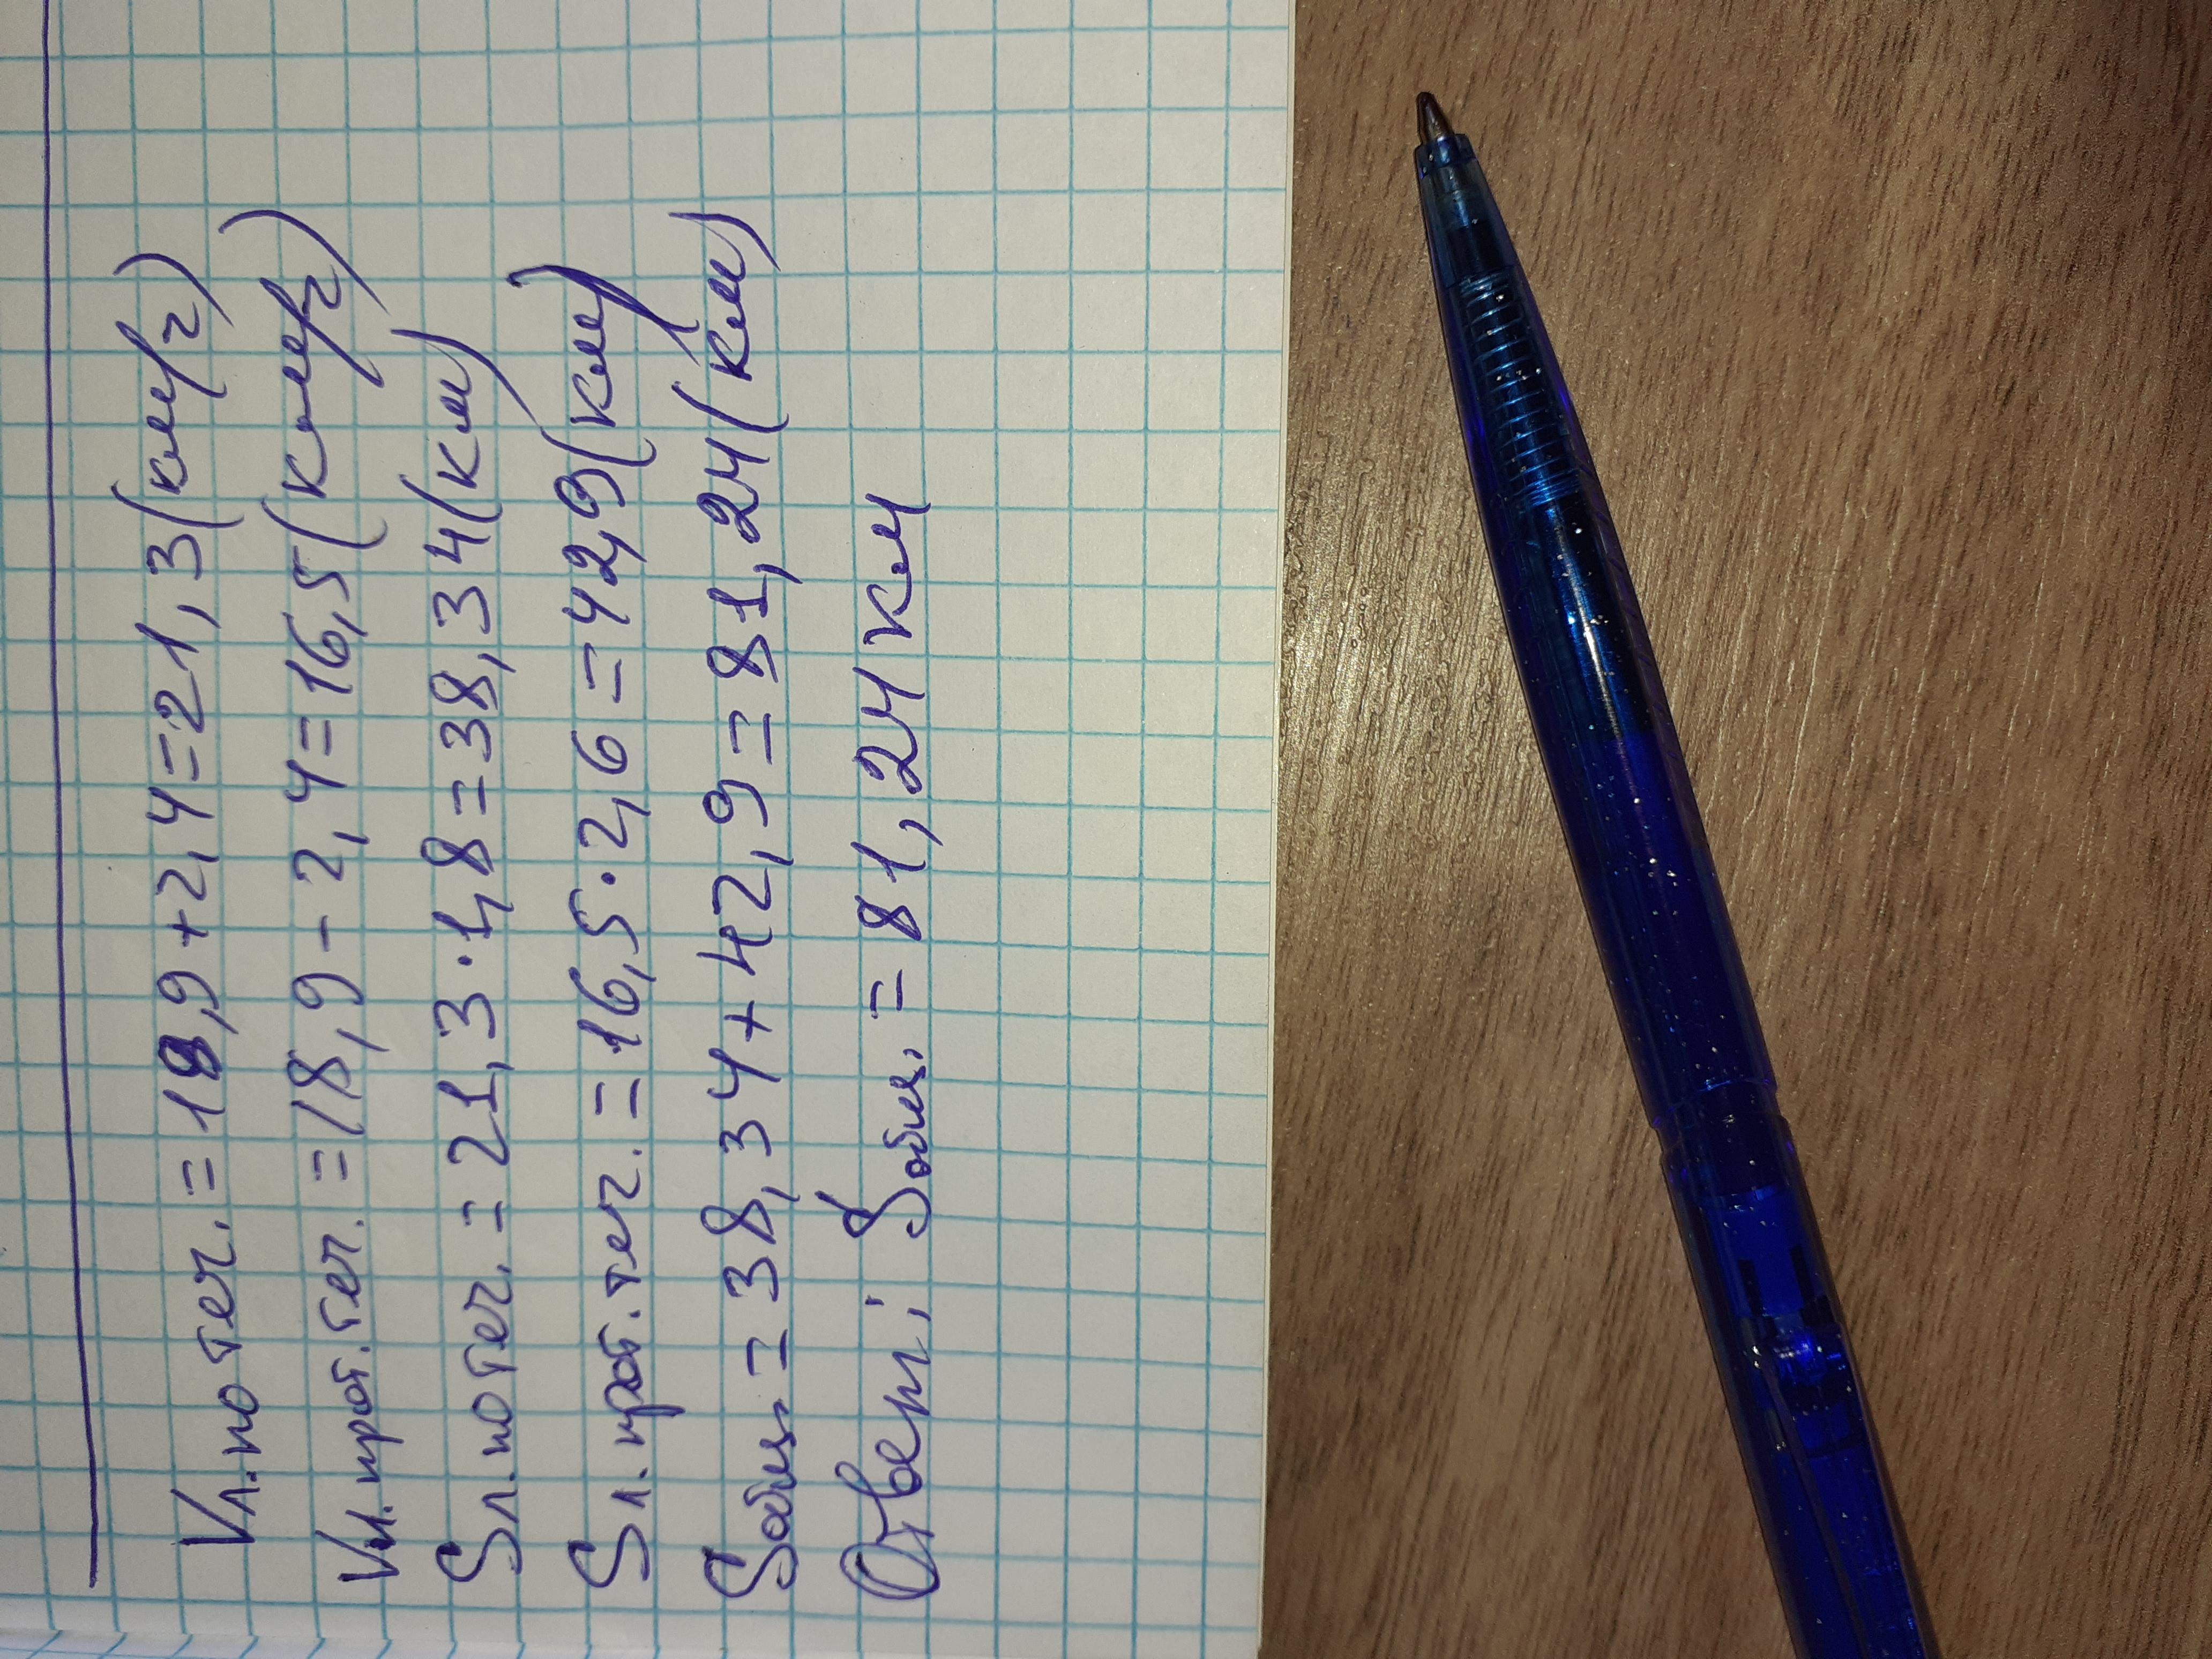 Vл.по теч. = 18,9 + 2,4 = 21,3 (км/ч)
Vл.прот.теч. = 18,9 - 2,4 = 16,5 (км/ч)
Sл.по теч. = 21,3 · 1,8 = 38,34 (км)
Sл.прот.теч. = 16,5 · 2,6 = 42,9 (км)
Sобщ. = 38,34 + 42,9 = 81,24 (км)
Ответ: Sобщ. = 81,24 км